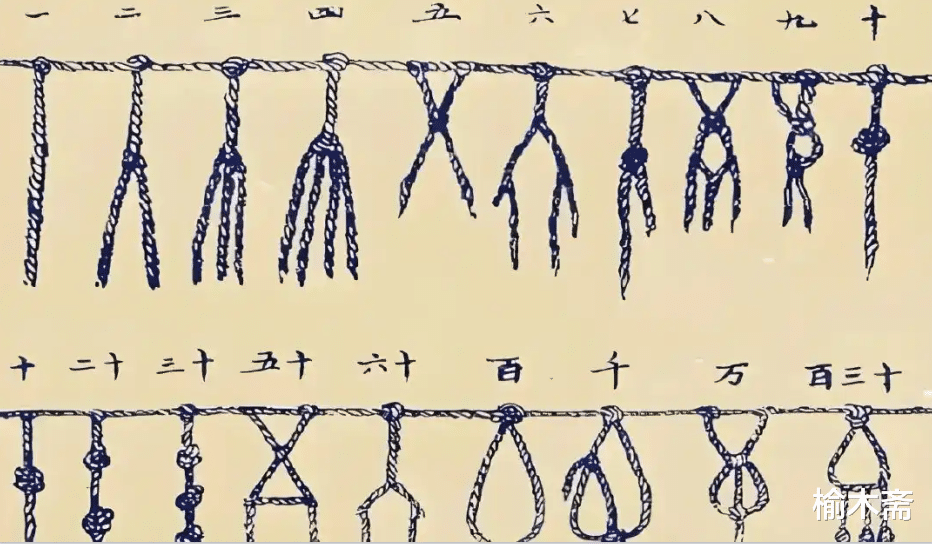 一 二 三 四 五 六 七 八 九 十
十 二十 三十 五十 六十 百 千 万 百三十
榆木斋